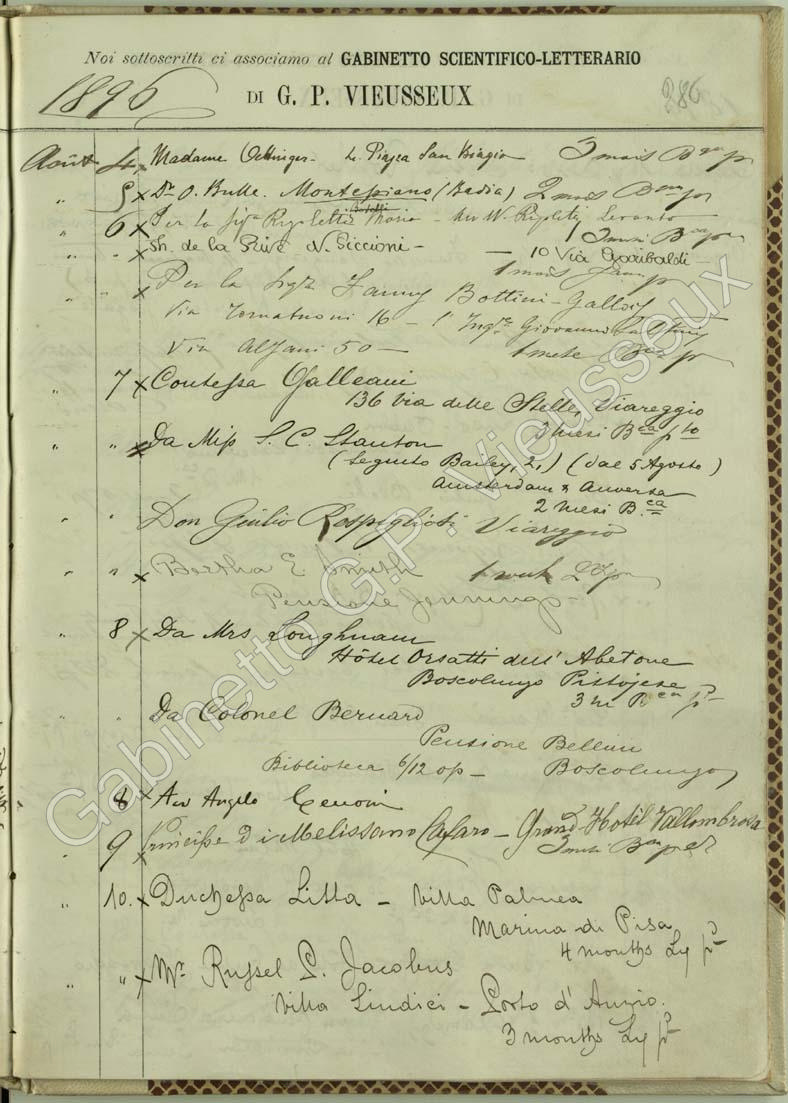 Noi sottoscritti ci associamo al GABINETTO SCIENTIFICO-LETTERARIO
1896 DI G. P. VIEUSSEUX 286
Août 4 Madame Oettinger - 2. Piazza San Biagio 3 mois
" 5 x Dr O. Bulle. Montepiano (Badia) 2 mois
" 6 x Per la Sigra Maria - Levanto
1
" " x de la N. Siccioni - - 10 Via Garibaldi -
1 mois
" x Per la Sigra Fanny Bottini-Galloij
Via 16 - l'Ingre Giovanni
Via Alfani 50 - 1 mese Bca
" 7 x Contessa Galleani
136 Via delle Stelle, Viareggio
3 mesi Bca pto
" " x Da Miss S. C. Stanton
(Seguito Bailey, 2,) (dal 5 Agosto)
Amsterdam & Anversa
2 mesi B.ca
" " Don Giulio Rospigliosi Viareggio
" " x Bertha E. Smith 1 week
Pensione Jennings -
" 8 x Da Mrs Loughnam
Hôtel Orsatti dell' Abetone
Boscolungo Pistojese
3 m
" Da Colonel Bernard
Pensione Bellini
Biblioteca 6/12 op - Boscolungo
8 x Avv Angelo
" 9 x Principe di Melissano Cafaro - Grand Hotel Vallombrosa
3 mesi
" 10. x Duchessa Litta - Villa Palmea
Marina di Pisa
4 months Ly pt
" x Mr Russel S. Jacobus
Villa Lindici - Porto d'Anzio.
3 months Ly pt
Gabinetto G.P. Vieusseux